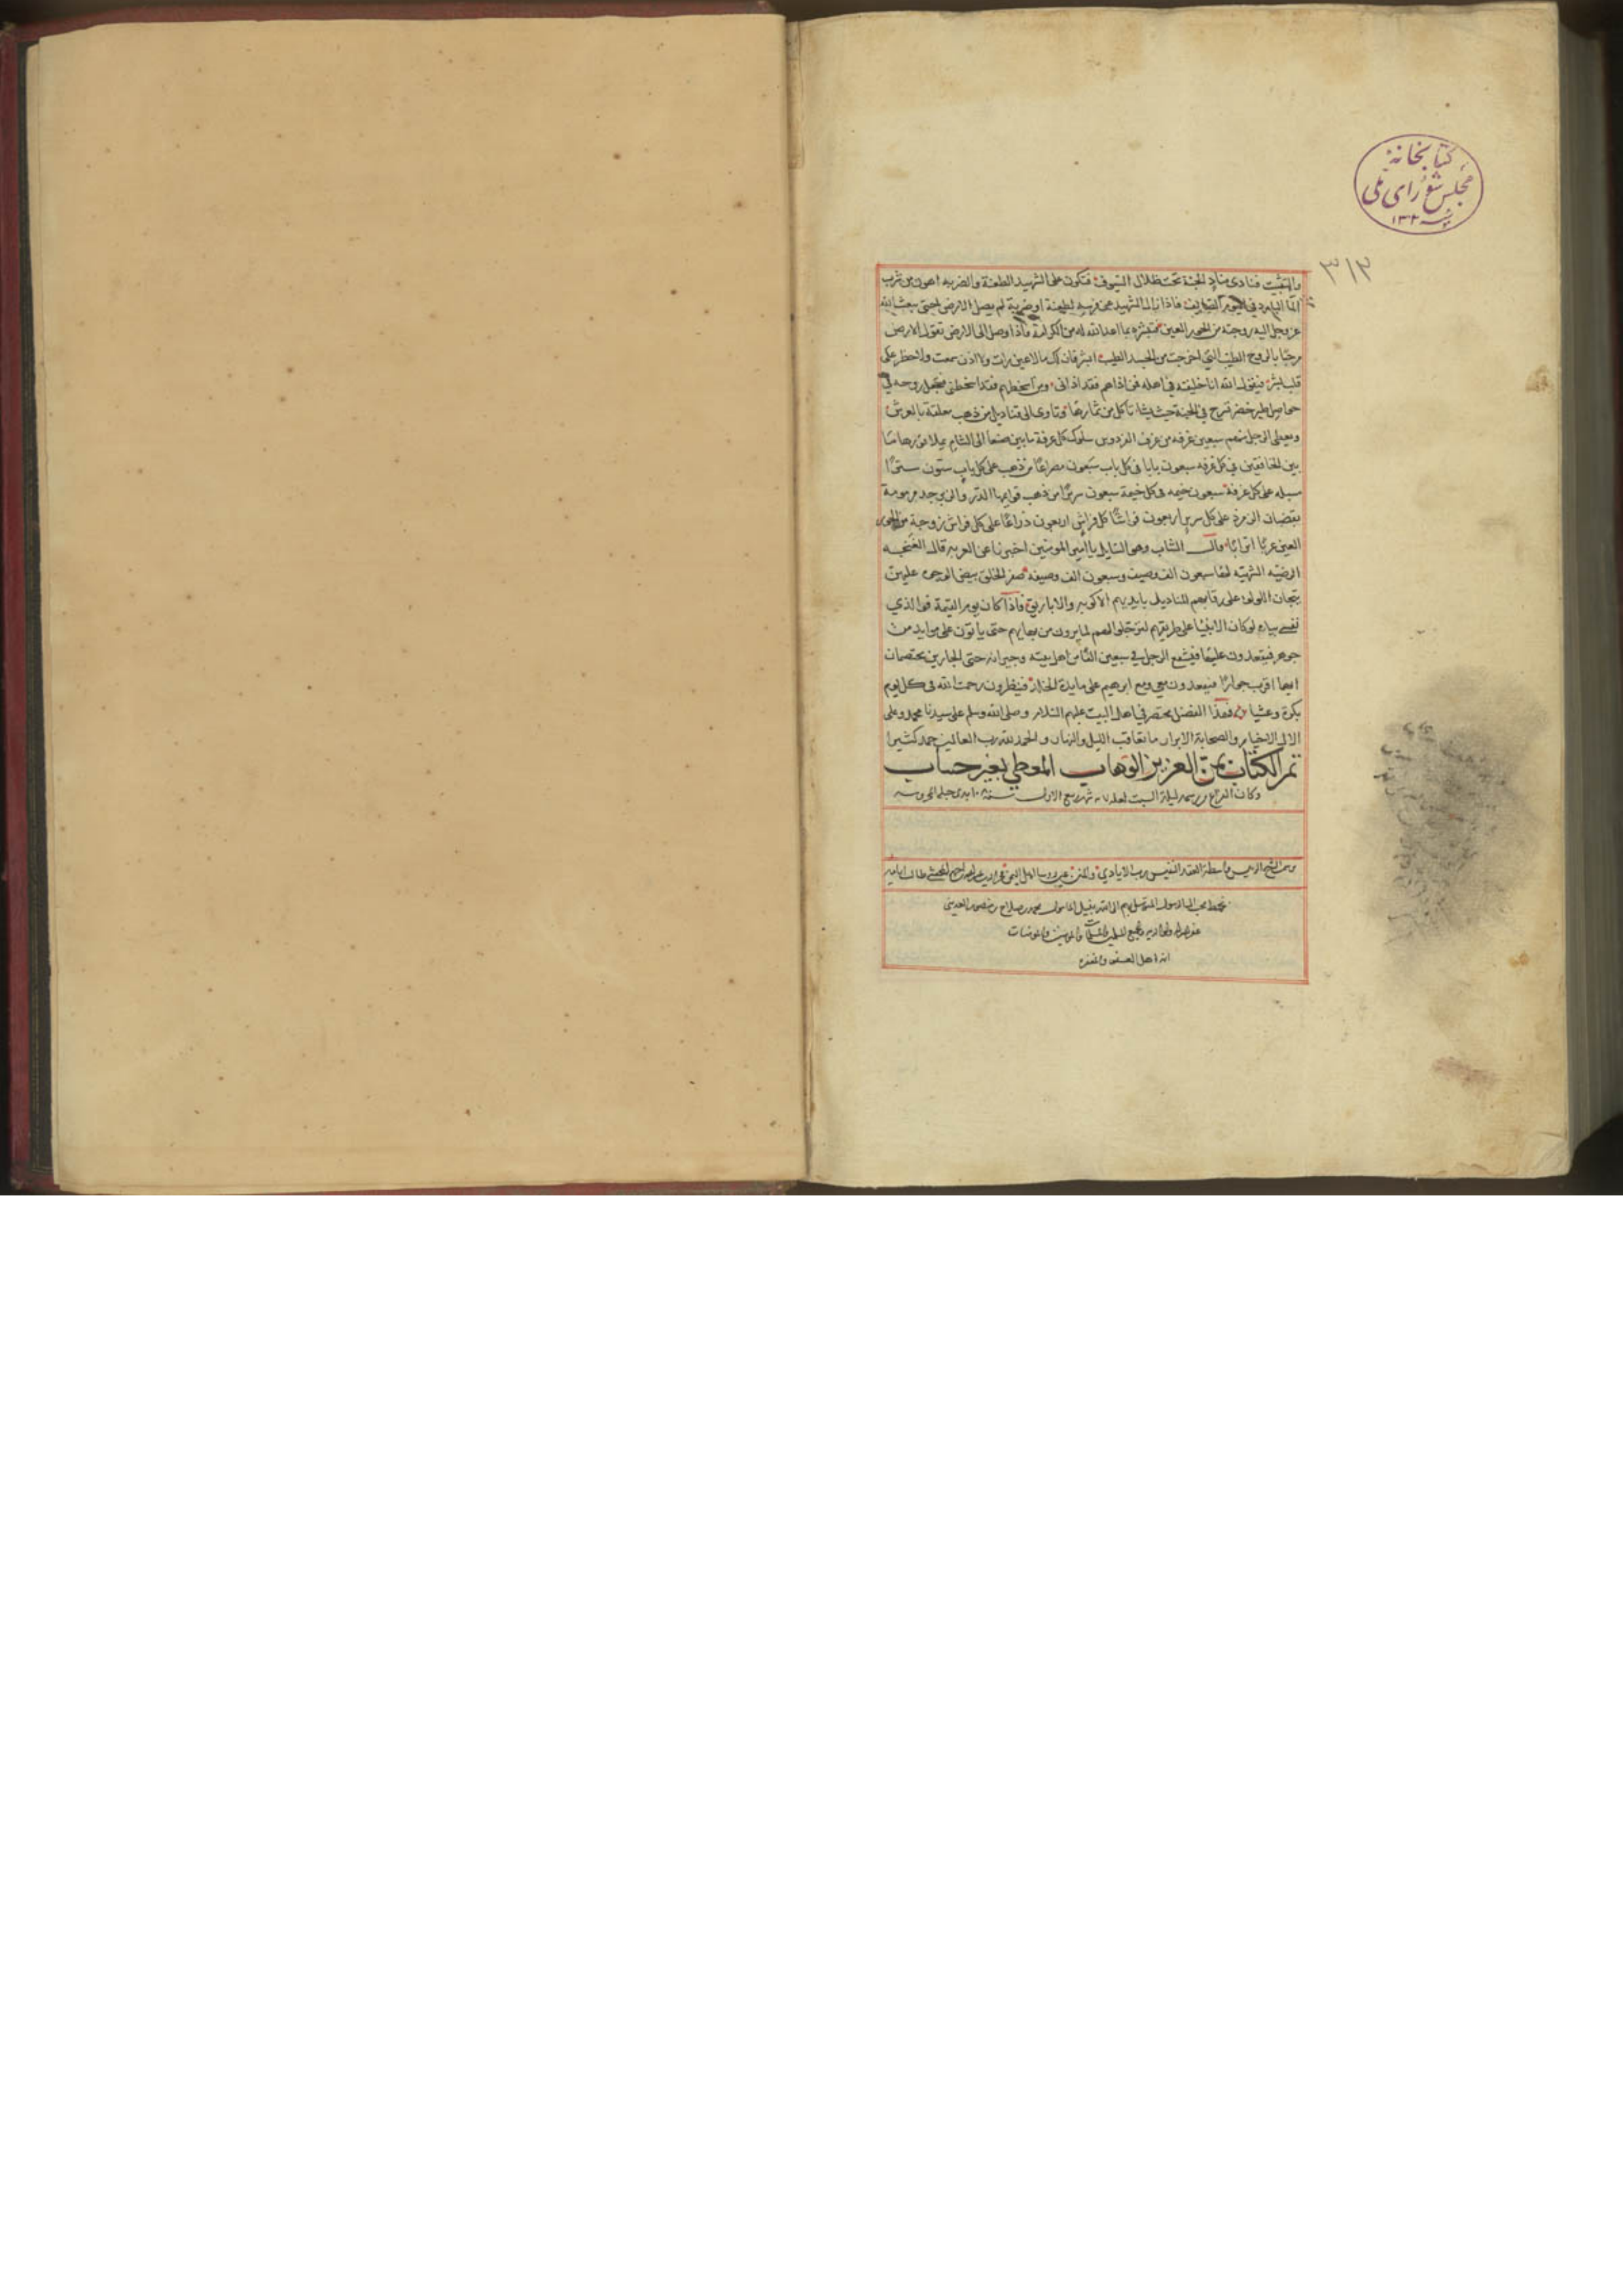 كتابخانهٔ
مجلس شورای ملی
٣١٢
والتثبت فنادى مناد الجنة تحت ظلال السيوف فتكون على الشهيد الطعنة والضربة اهون من شرب
الما البارد في اليوم الصايف فاذا زال الشهيد عن فرسه لطعنة او ضربة لم يصل الارض حتى يبعث الله
عز وجل اليه زوجته من الحور العين فتبشره بما اعد الله له من الكرامة فاذا وصل الى الارض تقول الارض
مرحبا بالروح الطيب التي اخرجت من الجسد الطيب ابشر فان لك مالا عين رات ولا اذن سمعت ولا خطر على
قلب بشر فيقول الله انا خليفته في اهله فمن اذاهم فقد اذاني ومن اسخطهم فقد اسخطني فتجعل روحه في
حواصل طير خضر تسرح في الجنة حيث يشا تاكل من ثمارها وتاوى الى قناديل من ذهب معلقة بالعرش
ويعطى الرجل منهم سبعين غرفة من غرف الفردوس سلوك كل غرفة ما بين صنعا الى الشام يملا نورها ما
بين الخافقين في كل غرفة سبعون بابا في كل باب سبعون مصراعا من ذهب على كل باب ستون سترا
مسبلة على كل غرفة سبعون خيمه في كل خيمة سبعون سريرا من ذهب قوايمها الدر والزبرجد مرمولة
بقضبان الزمرذ على كل سرير اربعون فراشا كل فراش اربعون ذراعا على كل فراش زوجة من الحور
العين عربا اترابا وقال الشاب وهو السايل يا امير المومنين اخبرنا عن العربه قال الغنجه
الرضيه الشهيه لها سبعون الف وصيف وسبعون الف وصيفه صفر الحلى بيض الوجوه عليهن
تيجان اللولو على رقابهم المناديل بايديهم الاكوبه والاباريق فاذا كان يوم القيمة فوالذي
نفسي بيده لو كان الانبيا على طريقهم لترجلوا لهم لما يرون من بهايهم حتى ياتون على موايد من
جوهر فيقعدون عليها فيشفع الرجل في سبعين الفا من اهل بيته وجيرانه حتى الجارين يختصمان
ايهما اقرب جوارا فيقعدون معي ومع ابرهيم على مايدة الخلد فينظرون رحمت الله في كل يوم
بكرة وعشيا فهذا الفضل مختصر في اهل البيت عليهم السلام وصلى الله وسلم على سيدنا محمد وعلى
الال الاخيار والصحابة الابرار ما تعاقب الليل والنهار والحمد لله رب العالمين حمد كثيرا
تم الكتاب بمن العزيز الوهاب المعطي بغير حساب
وكان الفراغ من رسمه ليلة السبت شهر ربيع الاول سنة
واسطة العقد النفيس رب الايادي والمنن عين روسا اهل اليمن
بخط محب ال الرسول المتوسل بهم الى الله بنيل السول محمد بن صلاح بن منصور
غفر الله ولوالديه ولجميع المسلمين والمسلمات والمومنين والمومنات
انه اهل العفو والمغفره